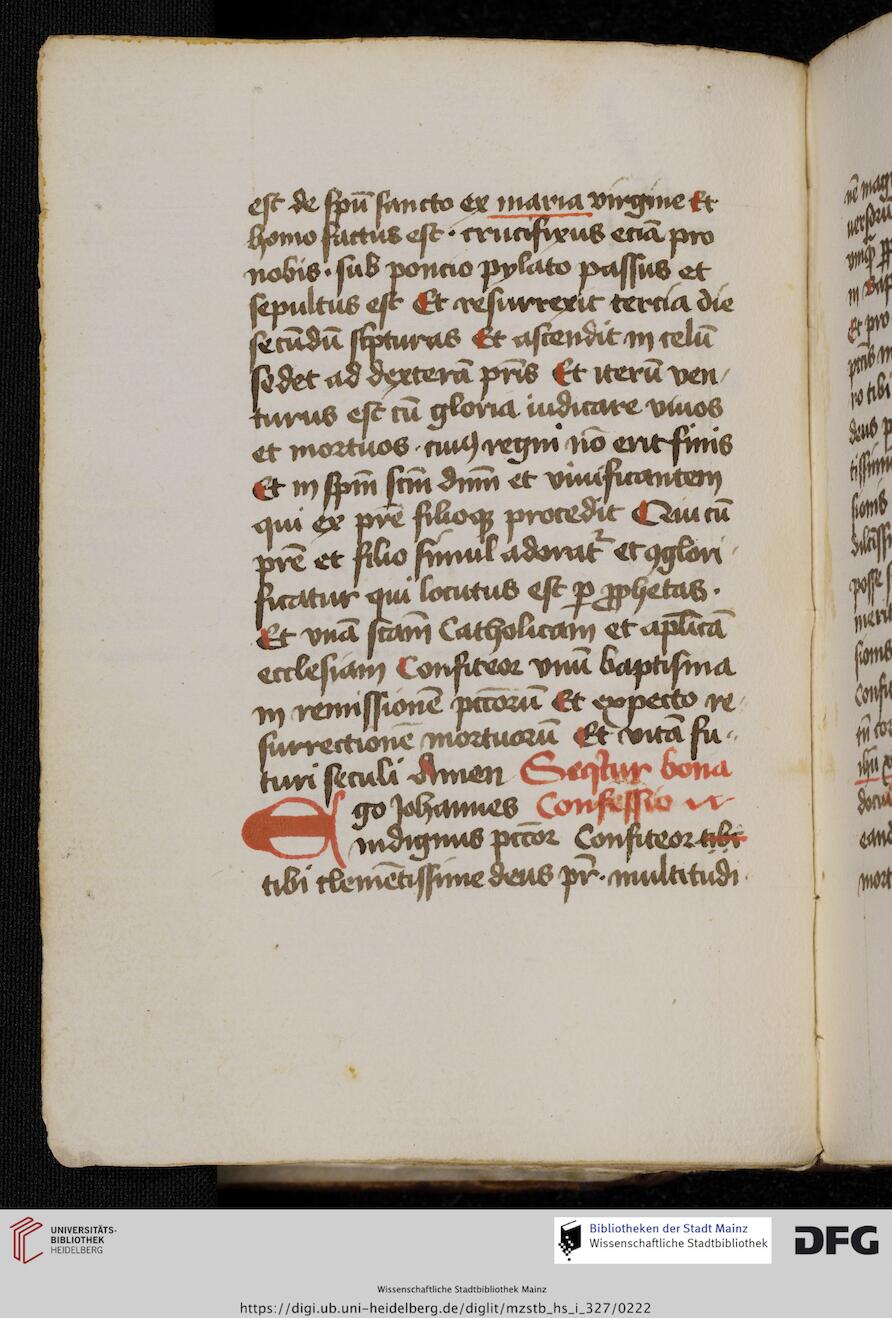 est de spũ sancto ex maria virgine Et
homo factus est · crucifixus eciã pro
nobis · sub poncio pylato passus et
sepultus est Et resurrexit tercia die
secũdũ scpturas Et ascendit in celũ
sedet ad dexterã pr̃is Et iterũ ven⸗
turus est cũ gloria iudicare viuos
et mortuos · cuiꝰ regni nõ erit finis
Et in spm̃ scm̃ dnm̃ et viuificantem
qui ex prẽ filioqꝫ procedit Qui cũ
prẽ et filio simul adorat᷑ et ꝯglori⸗
ficatur qui locutus est ꝑ ꝓphetas ·
Et vnã scam̃ Catholicam et apl̃icã
ecclesiam Confiteor vnũ baptisma
in remissionẽ pctõrũ Et expecto re⸗
surrectionẽ mortuorũ Et vitã fu⸗
turi seculi Amen Seqt᷑ur bona
Ego Johannes Confessio
indignus pctõr Confiteor tibi
tibi clemẽtissime deus pr̃ · multitudi⸗
UNIVERSITÄTS-
BIBLIOTHEK
HEIDELBERG
Bibliotheken der Stadt Mainz
Wissenschaftliche Stadtbibliothek
DFG
Wissenschaftliche Stadtbibliothek Mainz
https://digi.ub.uni-heidelberg.de/diglit/mzstb_hs_i_327/0222